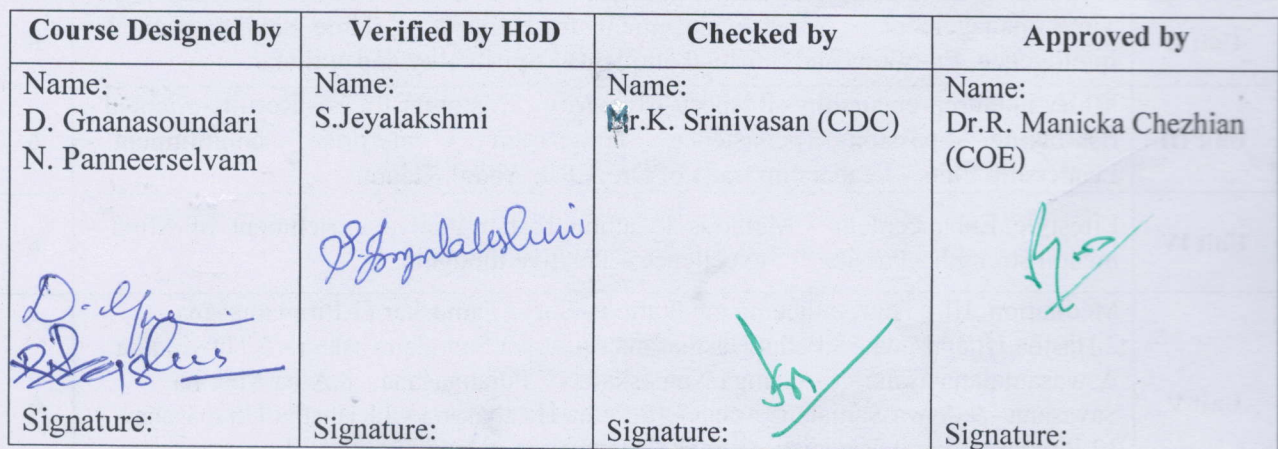 Course Designed by
Verified by HoD
Checked by
Approved by
Name:
D. Gnanasoundari
N. Panneerselvam
Signature:
Name:
S.Jeyalakshmi
S. Jeyalakshmi
Signature:
Name:
Mr.K. Srinivasan (CDC)
Signature:
Name:
Dr.R. Manicka Chezhian
(COE)
Signature: